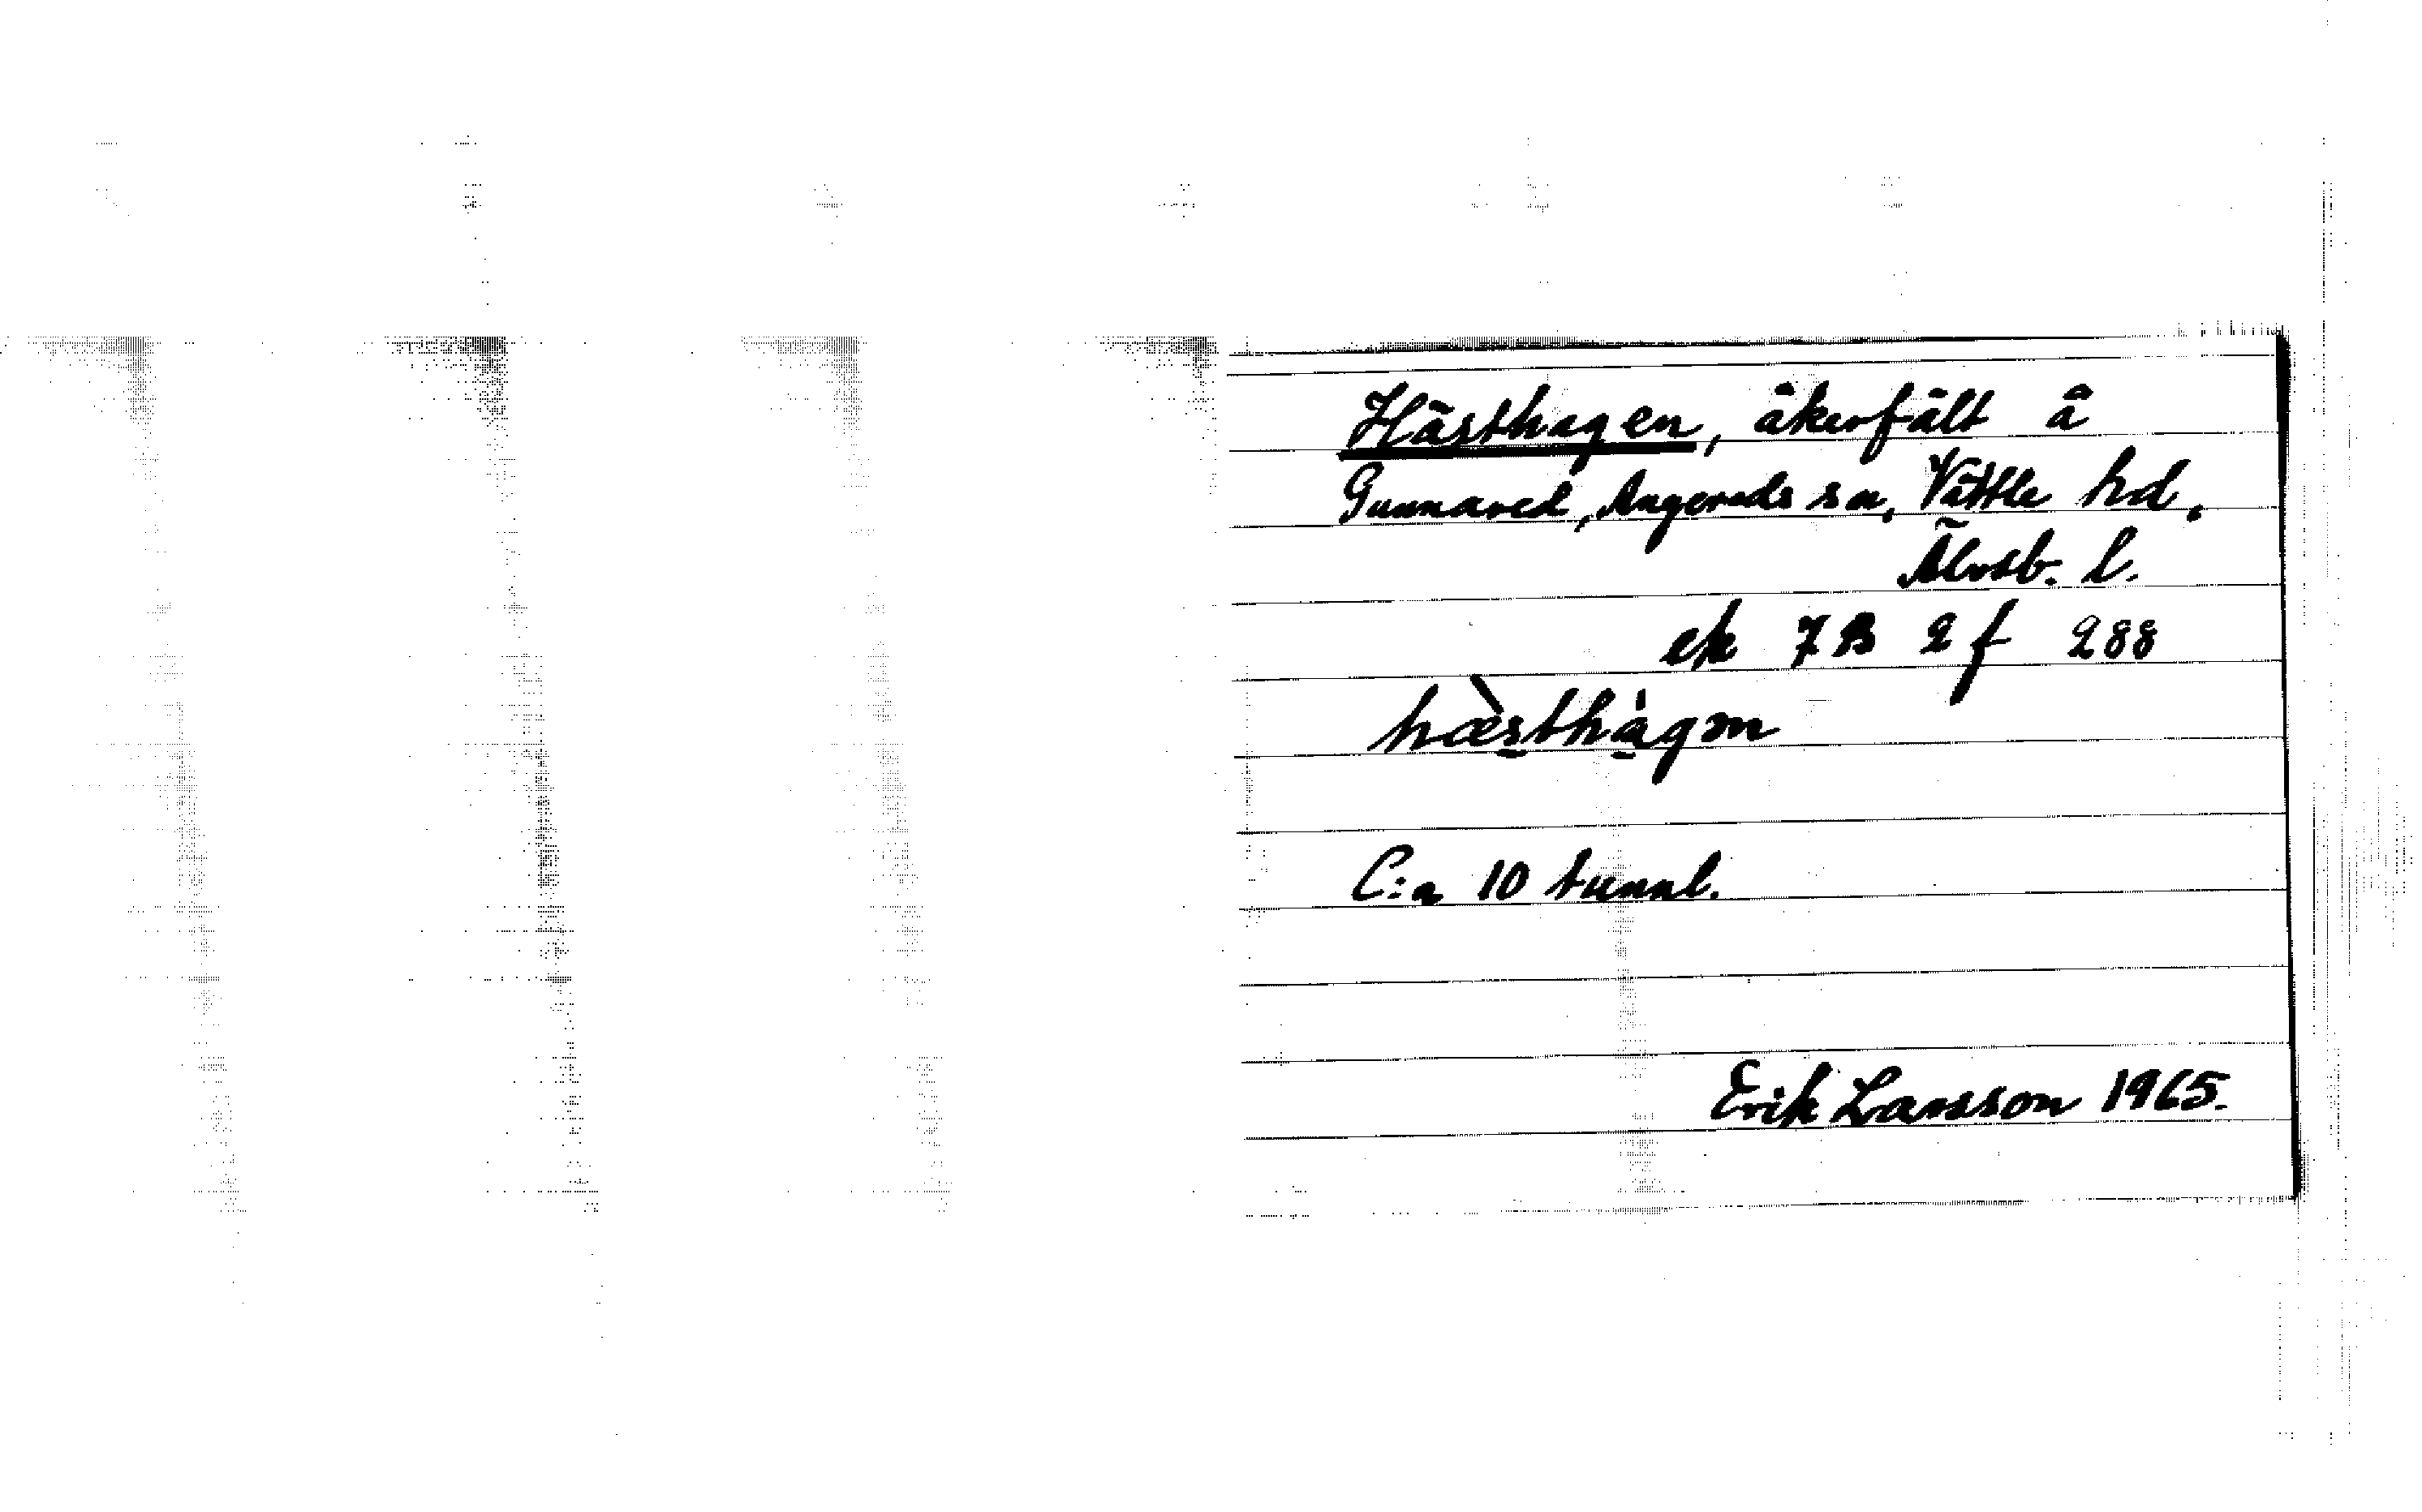 Hästhagen, åkerfält å
Gunnared, Angereds sn, Vättle hd,
Älvsb. l.
ek 7B 2f 288
hæ̀sthàgən
C:a 10 tunnl.
Erik Larsson 1965.